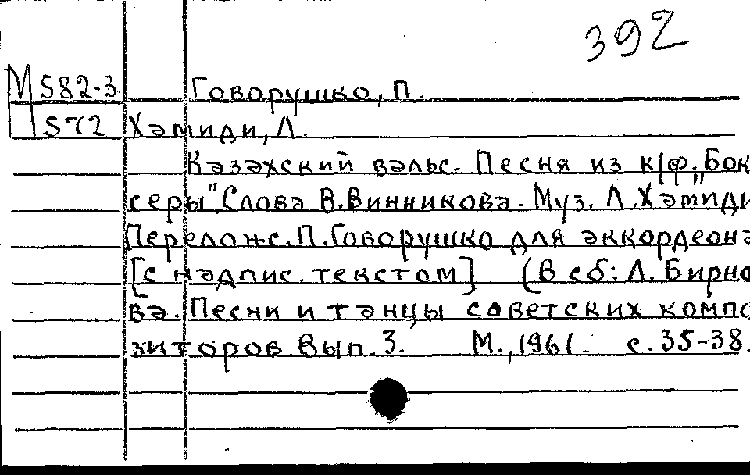 392
М 582-3 Говорушко, П.
572 Хамиди, Л.
Казахский вальс. Песня из к/ф „Бок
серы" Слова В.Винникова. Муз. Л.Хамиди
Перелож. П.Говорушко для аккордеона
[с надпис. текстом] (В сб: Л. Бирно
ва. Песни и танцы советских компо
зиторов Вып. 3. М., 1961. с. 35-38.